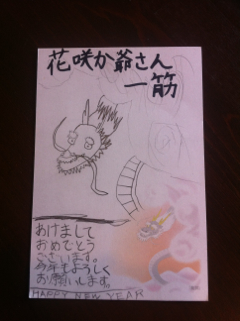 花咲か爺さん
一筋
あけまして
おめでとう
ございます。
今年もよろしく
お願いします。
HAPPY NEW YEAR